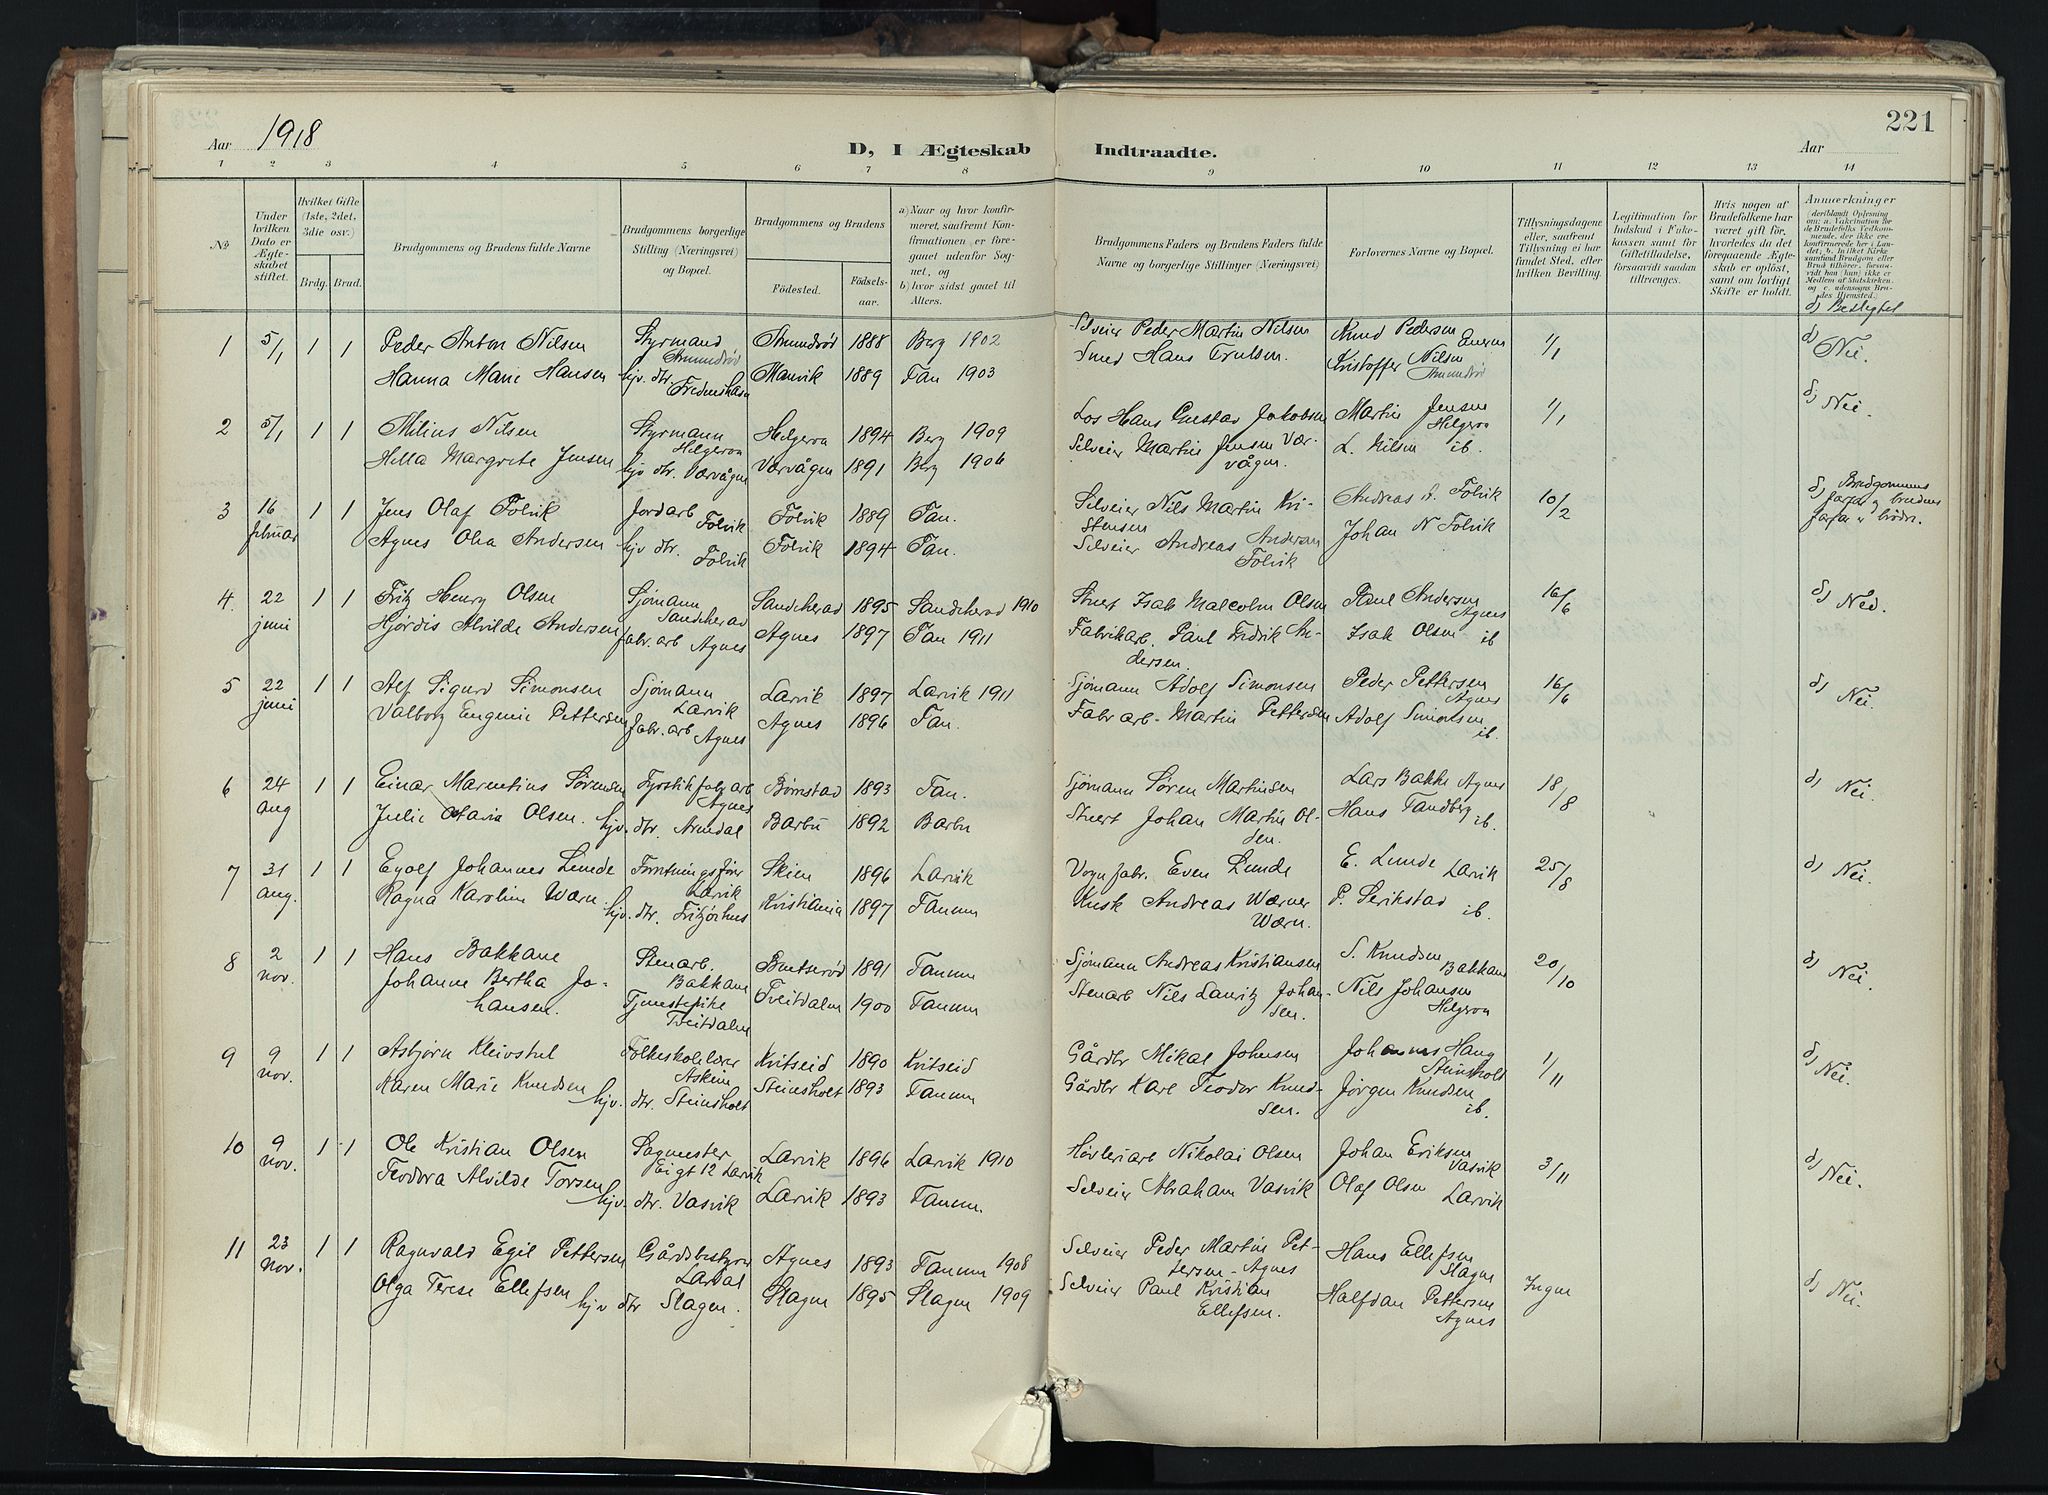 Aar 1918
D, I Ægteskab Indtraadte.
Aar
221
1 2 3 4 5 6 7 8 9 10 11 12 13 14
No
Under hvilken Dato er Ægteskabet stiftet.
Hvilket Gifte (1ste, 2det, 3die osv.)
Brdg. Brud.
Brudgommens og Brudens fulde Navne
Brudgommens borgerlige Stilling (Næringsvei) og Bopæl.
Brudgommens og Brudens
Fødested.
Fødselsaar.
a) Naar og hvor konfirmeret, saafremt Konfirmationen er foregaaet udenfor Sognet, og
b) hvor sidst gaaet til Alters.
Brudgommens Faders og Brudens Faders fulde Navne og borgerlige Stillinger (Næringsvei)
Forlovernes Navne og Bopæl.
Tillysningsdagene eller, saafremt Tillysning ei har fundet Sted, efter hvilken Bevilling.
Legitimation for Indskud i Enkekassen samt for Giftetilladelse, forsaavidt saadan tiltrænges.
Hvis nogen af Brudefolkene har været gift før, hvorledes da det foregaaende Ægteskab er opløst, samt om lovligt Skifte er holdt.
Anmærkninger (deriblandt Oplysning om: a. Vakcination for de Brudefolks Vedkommende, der ikke ere konfirmerede her i Landet; b. hvilket Kirkesamfund Brudgom eller Brud tilhører, forsaavidt han (hun) ikke er Medlem af Statskirken, og c. udensogns Brudes Hjemsted.
d) Beslegtet
1 5/1 1 1 Peder Anton Nilsen Styrmand Amundrød Amundrød 1888 Berg 1902 Selveier Peder Martin Nilsen Knud Pedersen 1/1 d) Nei.
Hanna Marie Hansen hjv. dtr. Manvik 1889 Tan 1903 Smed Hans Trulsen. Kristoffer Nilsen Amundrød
2 5/1 1 1 Milius Nilsen Styrmann Helgeroa Helgeroa 1894 Berg 1909 Los Hans Gustav Jakobsen Martin Jensen Helgeroa 1/1 d) Nei.
Hilla Margrete Jensen hjv dtr. Værvågen Værvågen 1891 Berg 1906 Selveier Martin Jensen Værvågen. L. Nilsen ib.
3 16 februar 1 1 Jens Olaf Folvik Jordarb Folvik Folvik 1889 Tan. Selveier Nils Martin Kristensen Andreas A. Folvik 10/2 d) Brudgommens farfar og brudens farfar er brødre.
Agnes Olea Andersen hjv dtr. Folvik Folvik 1894 Tan. Selveier Andreas Andersen Folvik Johan N Folvik
4. 22 juni 1 1 Fritz Henry Olsen Sjømann Sandeherad Sandeherad 1895 Sandeherad 1910 Stuert Isak Malcolm Olsen Paul Andersen Agnes 16/6 d) Nei.
Hjørdis Alvilde Andersen fabr. arb Agnes Agnes 1897 Tan 1911 Fabrikarb. Paul Fredrik Andersen. Isak Olsen ib
5 22 juni 1 1 Alf Sigurd Simonsen Sjømann Larvik Larvik 1897 Larvik 1911 Sjømann Adolf Simonsen Peder Pettersen Agnes 16/6 d) Nei.
Valborg Eugenie Pettersen fabr. arb Agnes Agnes 1896 Tan. Fabr arb. Martin Pettersen Adolf Simonsen ib.
6 24 aug 1 1 Einar Marentius Sørensen Fyrstikfabr arb Agnes Bømstad 1893 Tan. Sjømann Søren Martinsen Lars Bakke Agnes 18/8 d) Nei.
Julie Maria Olsen. hjv. dtr. Arendal Barbu 1892 Barbu Stuert Johan Martin Olsen. Hans Tandberg ib.
7 31 aug. 1 1 Eyolf Johannes Lunde Forretningsfører Larvik Skien 1896 Larvik Vognfabr. Even Lunde E. Lunde Larvik 25/8 d) Nei.
Ragna Karoline Wærn. hjv. dtr. Fritzøehus Kristiania 1897 Tanum Kusk Andreas Werner Wærn. P. Serikstad ib.
8 2 nov. 1 1 Hans Bakkane Stenarb. Bakkane 1891 Tanum Sjømann Andreas Kristiansen S. Knudsen Bakkane 20/10 d) Nei.
Johanne Bertha Johansen. Tjenestepike Tveitdalen Tveitdalen 1900 Tanum Stenarb Nils Lauritz Johansen. Nils Johansen Helgeroa
9 9 nov. 1 1 Asbjørn Kleivstul Folkeskolelærer Askim Kvitseid 1890 Kvitseid Gårdbr Mikal Johnsen Johannes Haug Steinsholt 1/11 d) Nei.
Karen Marie Knudsen hjv. dtr. Steinsholt Steinsholt 1893 Tanum Gårdbr Karl Teodor Knudsen. Jørgen Knudsen ib.
10 9 nov. 1 1 Ole Kristian Olsen Sagmester Eigt 12 Larvik Larvik 1896 Larvik 1910 Høvleriarb Nikolai Olsen Johan Eriksen Vasvik 3/11 d) Nei.
Teodora Alvilde Torsen hjv. dtr. Vasvik Larvik 1893 Tanum. Selveier Abraham Vasvik Olaf Olsen Larvik
11 23 nov. 1 1 Ragnvald Egil Pettersen Gårdsbestyrer Lardal Agnes 1893 Tanum 1908 Selveier Peder Martin Pettersen - Agnes Hans Ellefsen Slagen Ingen d) Nei.
Olga Terese Ellefsen hjv dtr Slagen. Slagen 1895 Slagen 1909 Selveier Paul Kristian Ellefsen. Halfdan Pettersen Agnes